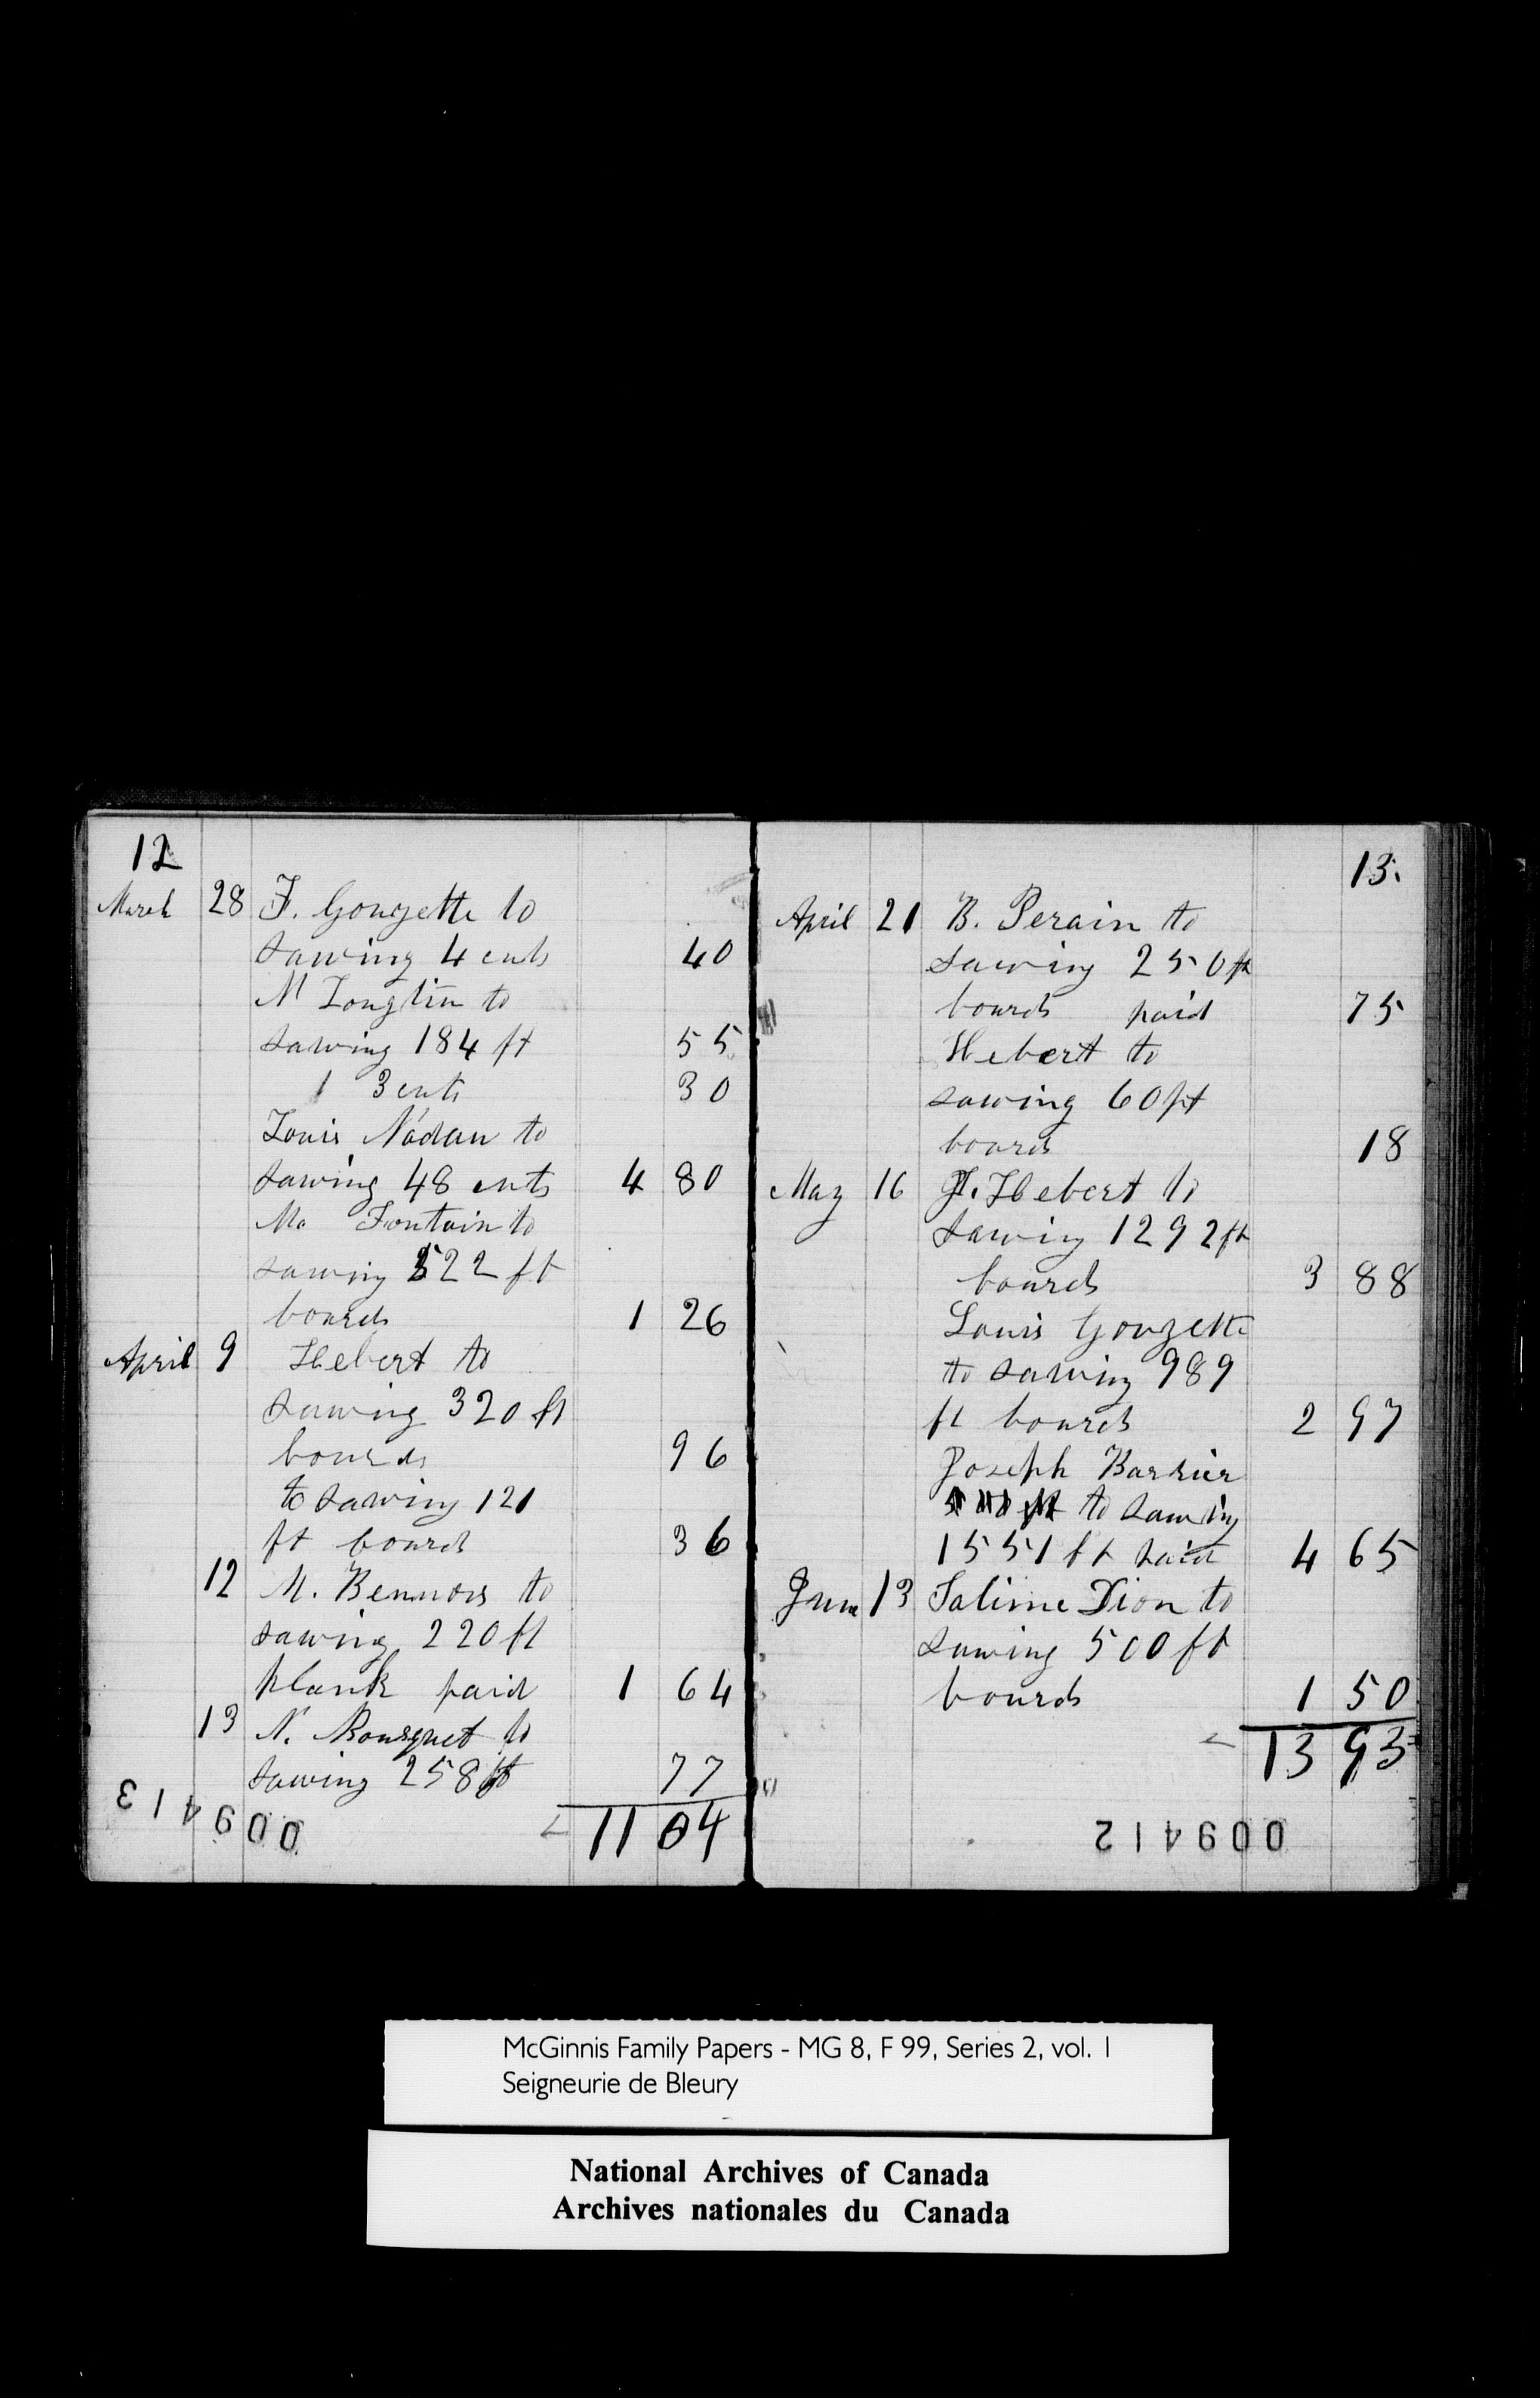 12
March 28 F. Gouzette to
sawing 4 cuts 40
M Longtin to
sawing 184 ft 55
1 3 cuts 30
Louis Nadau to
sawing 48 cuts 4 80
Ma Fontain to
sawing 522 ft
boards 1 26
April 9 Hebert to
sawing 320 ft
boards 96
to sawing 121
ft boards 36
12 M. Bennors to
sawing 220 ft
plank paid 1 64
13 N. Bousquet to
sawing 258 ft 77
11 04
009413
13.
April 21 B. Perain to
sawing 250 ft
boards paid 75
Hebert to
sawing 60 ft
boards 18
May 16 J. Hebert to
sawing 1292 ft
boards 3 88
Louis Gouzette
to sawing 989
ft boards 2 97
Joseph Barrier
to sawing
1551 ft paid 4 65
June 13 Salime Dion to
sawing 500 ft
boards 1 50
13 93
009412
McGinnis Family Papers - MG 8, F 99, Series 2, vol. 1
Seigneurie de Bleury
National Archives of Canada
Archives nationales du Canada